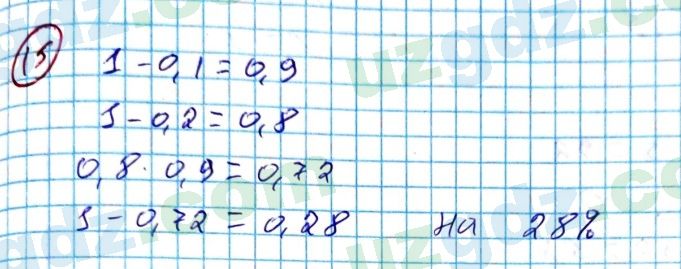 15
1 - 0,1 = 0,9
1 - 0,2 = 0,8
0,8 · 0,9 = 0,72
1 - 0,72 = 0,28 на 28%
uzgdz.com